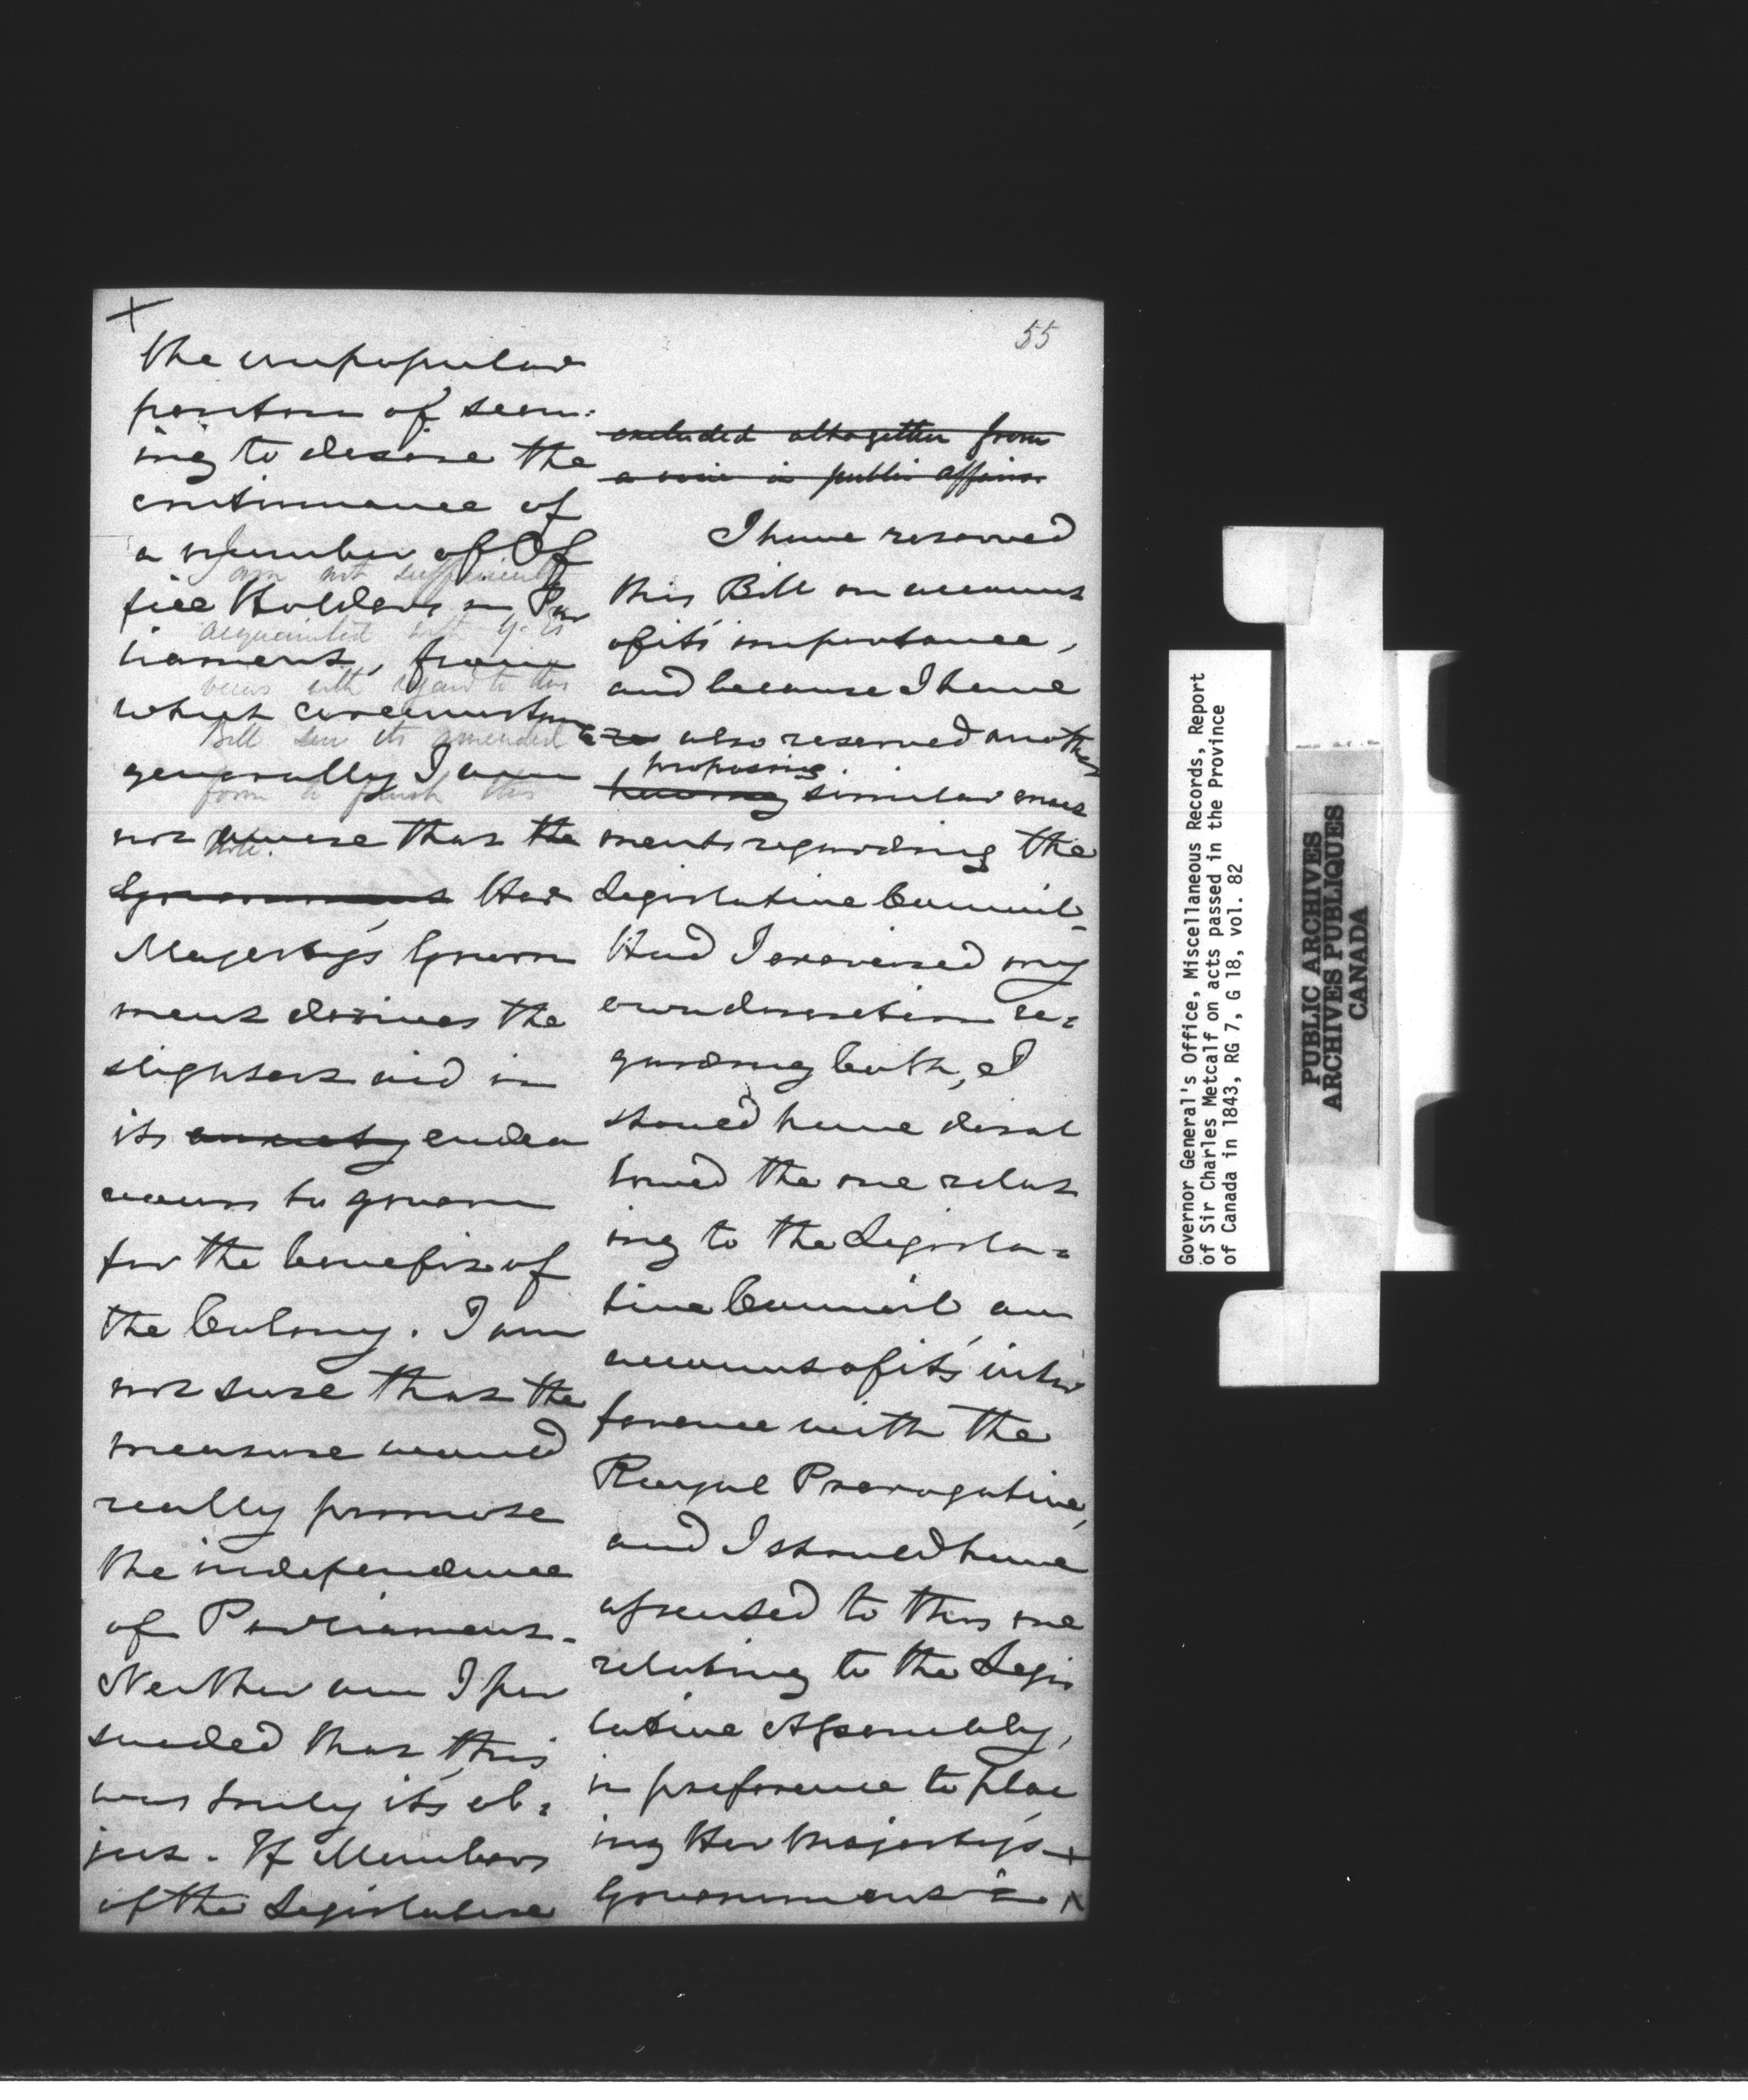 55
excluded altogether from
a voice in public affairs.
I have reserved
this Bill on account
of it's importance,
and because I have
also reserved another
proposing
having similar enact
ments regarding the
Legislative Council.
Had I exercised my
own discretion re=
garding both, I
should have disal
lowed the one relat
ing to the Legisla=
tive Council on
account of it's inter
ference with the
Royal Prerogative,
and I should have
assented to this one
relating to the Legis
lative Assembly,
in preference to plac
ing Her Majesty's
Government in
+
the unpopular
position of seem=
ing to desire the
continuance of
a number of Of
fice Holders in Par
liament, from
which circumstance
generally I am
not aware that the
Government Her
Majesty's Govern
ment derives the
slightest aid in
its anxiety endea
vours to govern
for the benefit of
the Colony. I am
not sure that the
measure would
really promote
the independence
of Parliament.
Neither am I per
suaded that this
was truly it's ob=
ject. If Members
of the Legislature
I am not sufficiently
acquainted with
views with regard to this
Bill in its amended
form to finish this
Note.
Governor General's Office, Miscellaneous Records, Report
of Sir Charles Metcalf on acts passed in the Province
of Canada in 1843, RG 7, G 18, vol. 82
PUBLIC ARCHIVES
ARCHIVES PUBLIQUES
CANADA